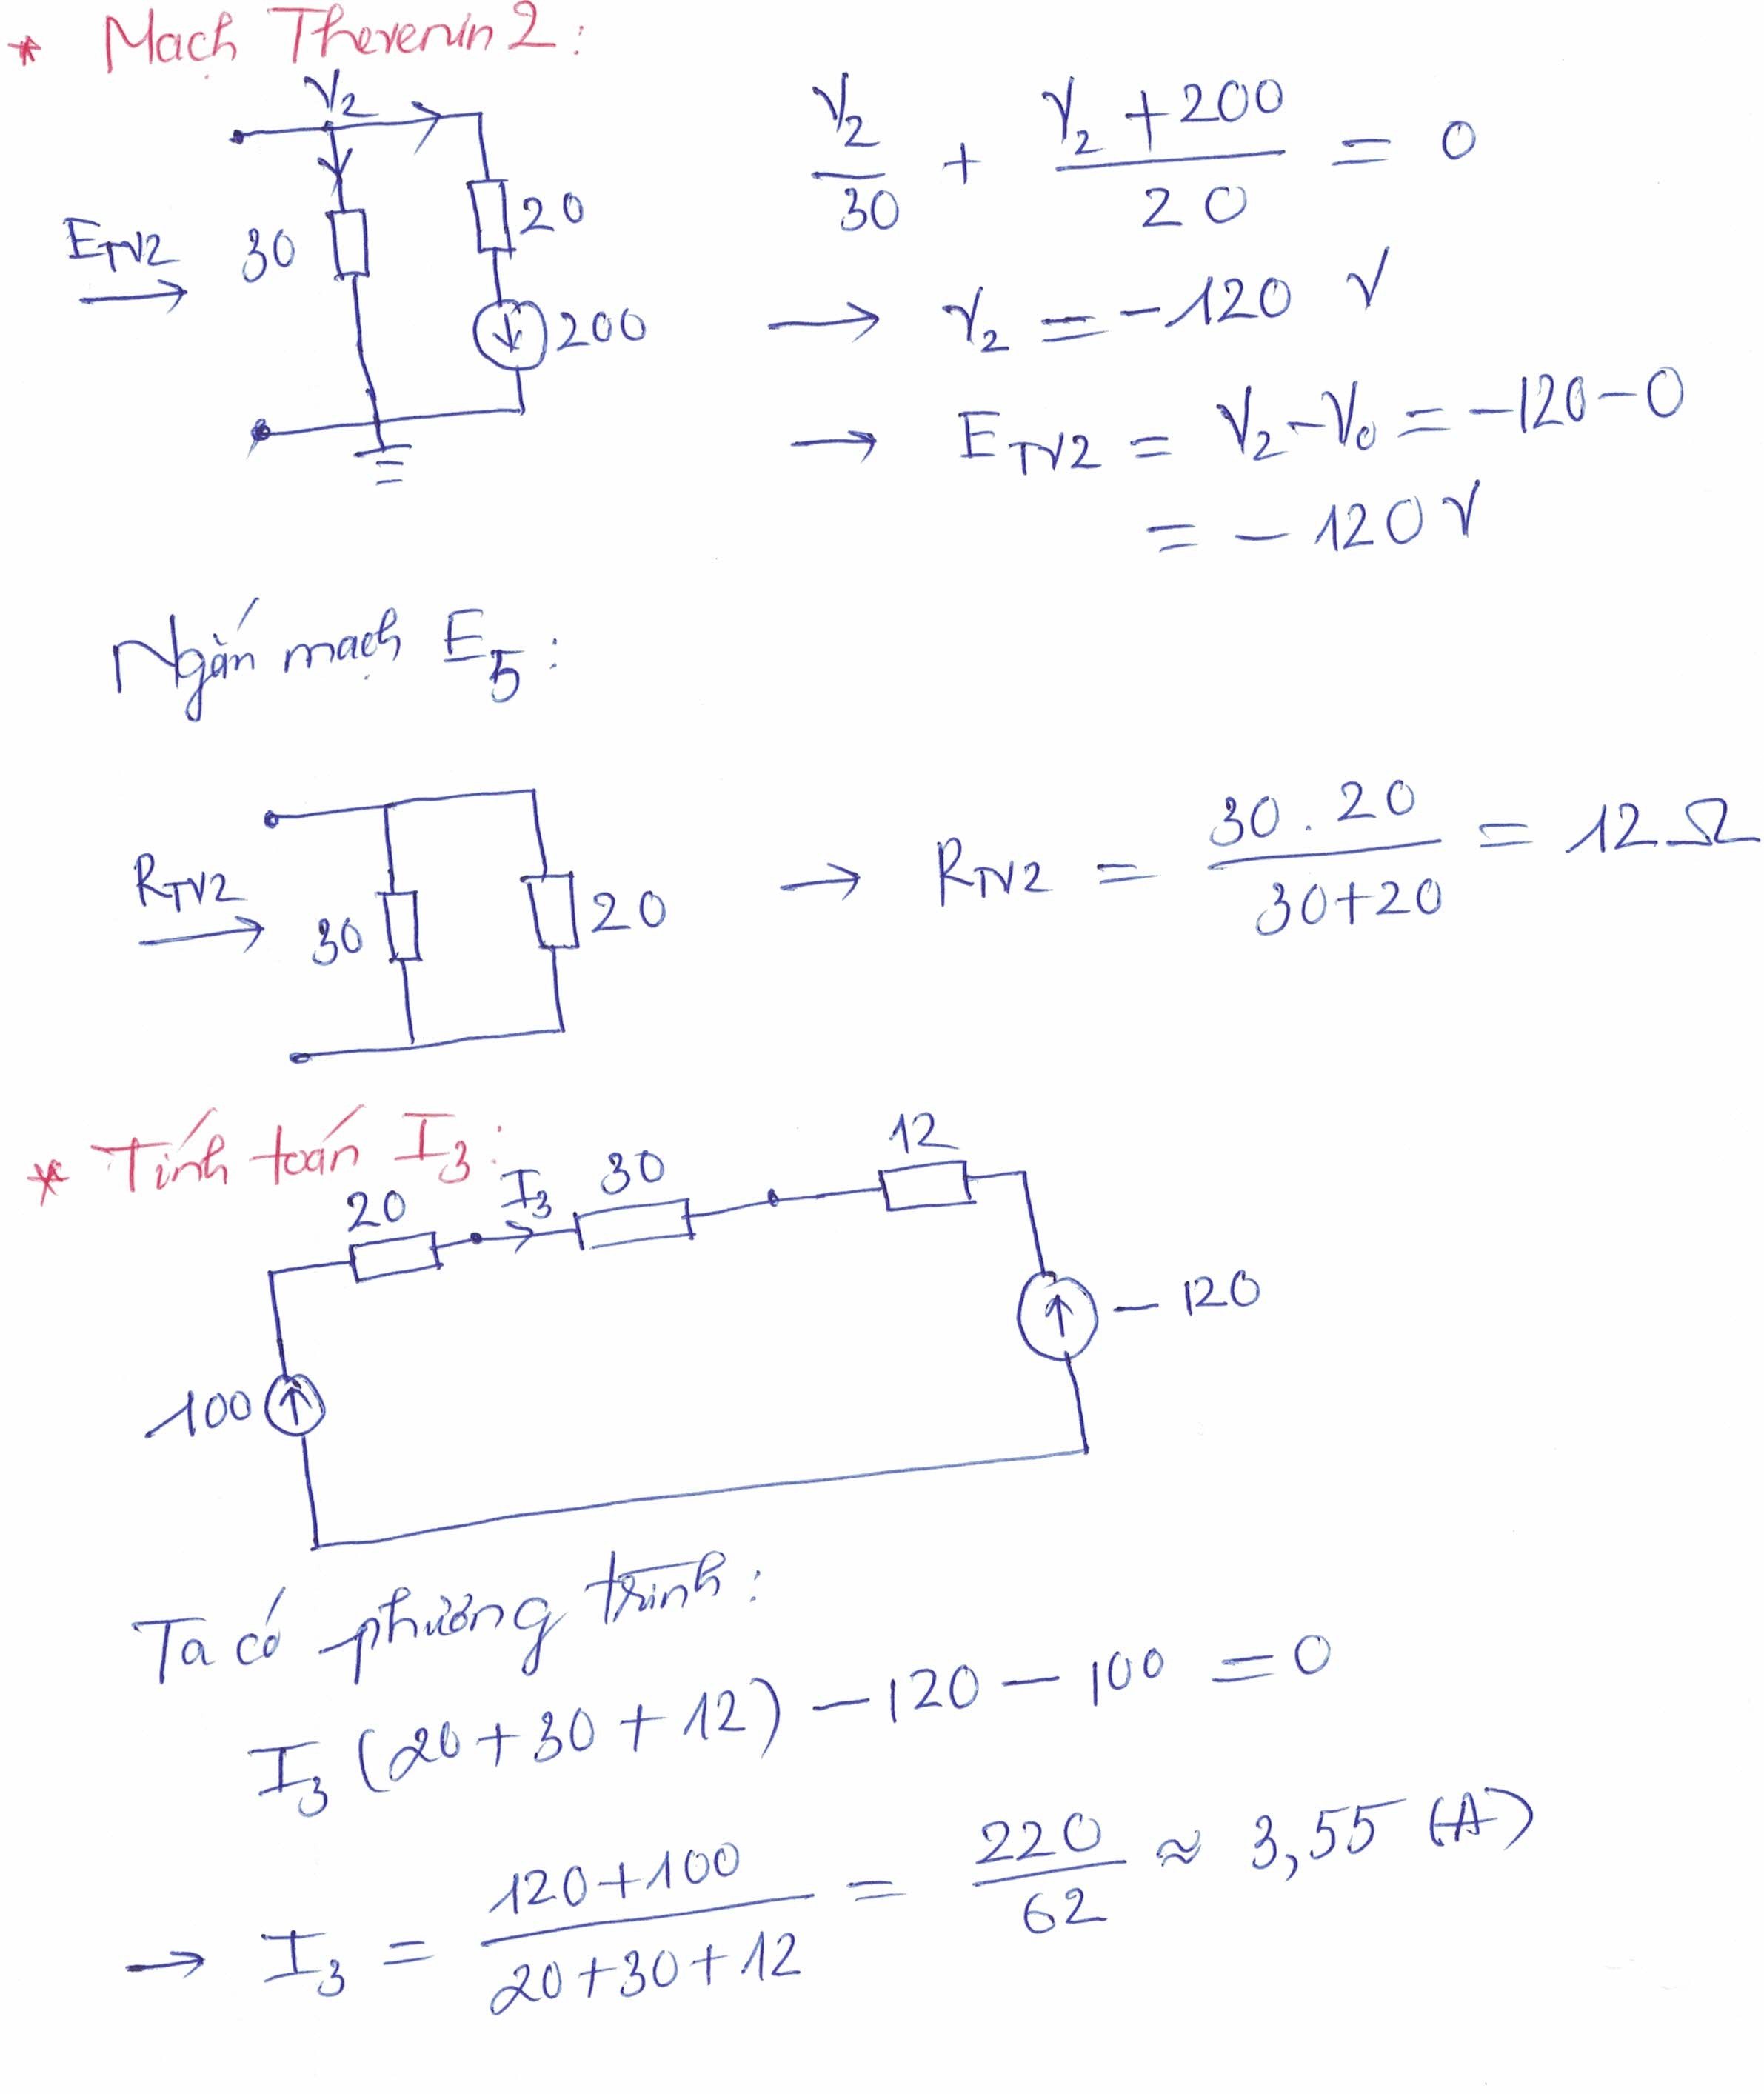 * Mạch Thevenin 2:
V₂
E_TV2
30
20
200
V₂/30 + (V₂ + 200)/20 = 0
→ V₂ = -120 V
→ E_TV2 = V₂ - V₀ = -120 - 0
= -120 V
Ngắn mạch E₅:
R_TV2
30
20
→ R_TV2 = (30 . 20)/(30+20) = 12 Ω
* Tính toán I₃:
20
I₃
30
12
100
-120
Ta có phương trình:
I₃ (20 + 30 + 12) - 120 - 100 = 0
→ I₃ = (120+100)/(20+30+12) = 220/62 ≈ 3,55 (A)